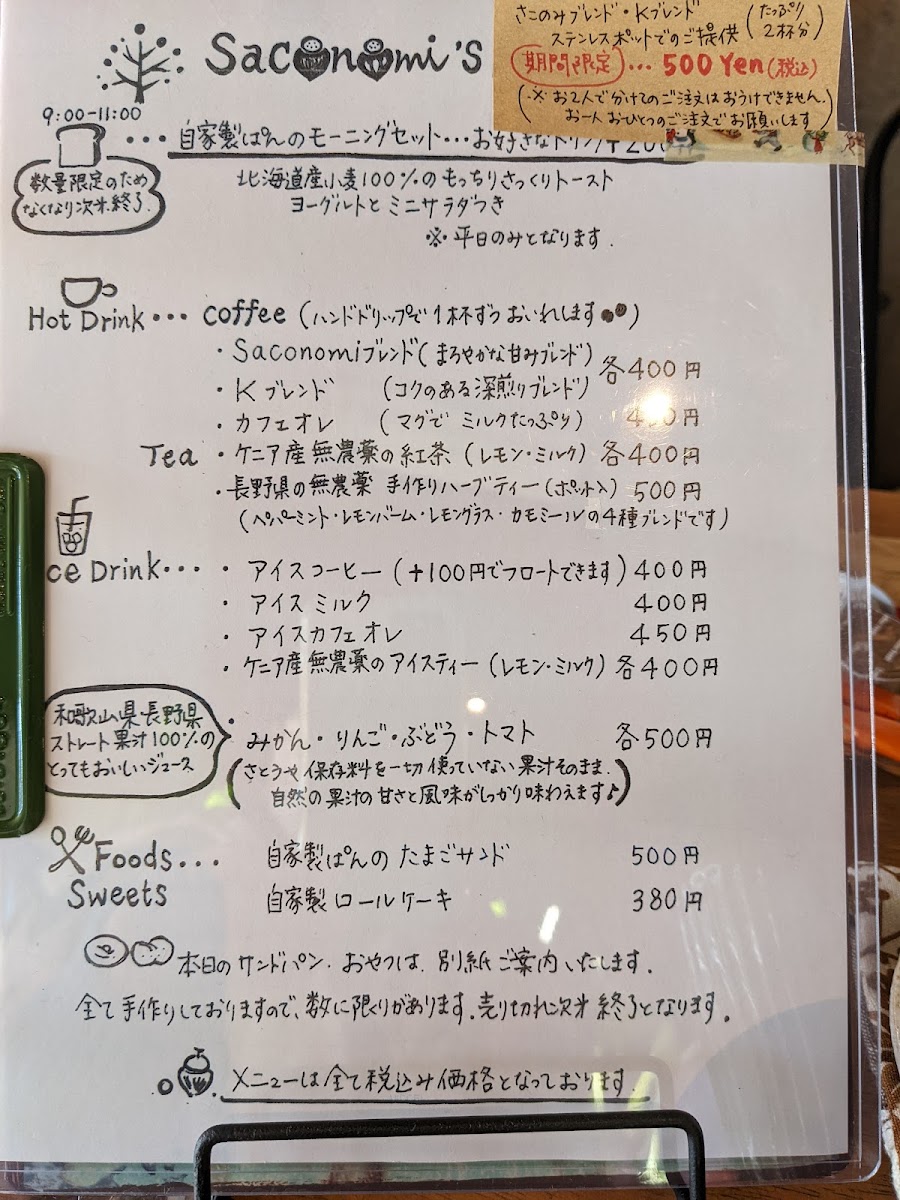 Saconomi's
さこのみブレンド・Kブレンド
ステンレスポットでのご提供 (たっぷり2杯分)
期間限定 ... 500 Yen (税込)
(※お2人で分けてのご注文はおうけできません.
お一人おひとつのご注文でお願いします)
9:00-11:00
・・・自家製ぱんのモーニングセット・・・お好きなドリンク+200
数量限定のため
なくなり次第.終了.
北海道産小麦100%のもっちりさっくりトースト
ヨーグルトとミニサラダつき
※平日のみとなります.
Hot Drink・・・ coffee (ハンドドリップで1杯ずつおいれします)
・Saconomiブレンド(まろやかな甘みブレンド)
・Kブレンド (コクのある深煎りブレンド) 各400円
・カフェオレ (マグで ミルクたっぷり) 円
Tea ・ケニア産無農薬の紅茶 (レモン・ミルク) 各400円
・長野県の無農薬 手作りハーブティー(ポット入) 500円
(ペパーミント・レモンバーム・レモングラス・カモミールの4種ブレンドです)
ce Drink・・・ ・アイスコーヒー (+100円でフロートできます) 400円
・アイスミルク 400円
・アイスカフェオレ 450円
・ケニア産無農薬のアイスティー(レモン・ミルク) 各400円
和歌山県長野県
ストレート果汁100%の
とってもおいしいジュース
・みかん・りんご・ぶどう・トマト 各500円
(さとうや保存料を一切使っていない果汁そのまま.
自然の果汁の甘さと風味がしっかり味わえます♪)
Foods... 自家製ぱんの たまごサンド 500円
Sweets 自家製ロールケーキ 380円
本日のサンドパン.おやつは.別紙ご案内いたします.
全て手作りしておりますので、数に限りがあります.売り切れ次第終了となります.
メニューは全て税込み価格となっております.